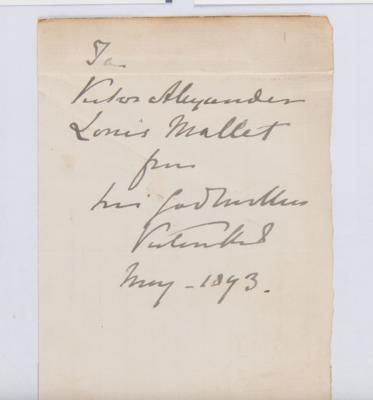 To
Victor Alexander
Louis Mallet
from
his Godmother
Victoria R I
May – 1893.